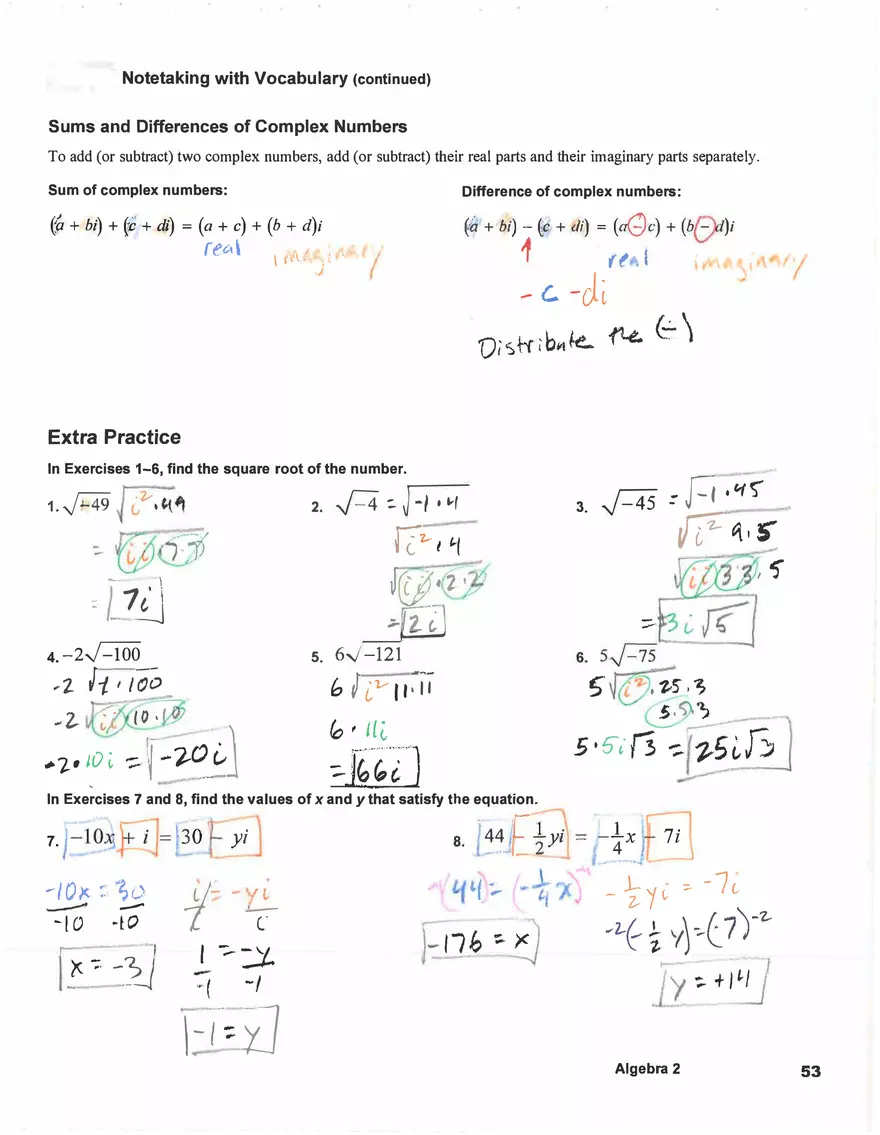 Notetaking with Vocabulary (continued)
Sums and Differences of Complex Numbers
To add (or subtract) two complex numbers, add (or subtract) their real parts and their imaginary parts separately.
Sum of complex numbers:
Difference of complex numbers:
(a + bi) + (c + di) = (a + c) + (b + d)i
(a + bi) − (c + di) = (a − c) + (b − d)i
real imaginary
↑ real imaginary
- c -di
Distribute the (-)
Extra Practice
In Exercises 1–6, find the square root of the number.
1. √−49 √i²·49
= √i·i·7·7
= 7i
2. √−4 = √-1·4
√i²·4
√i·i·2·2
= 2i
3. √−45 = √-1·45
√i² 9·5
√i·i·3·3·5
= 3i√5
4. −2√−100
-2 √-1·100
-2 √i·i·10·10
-2·10i = -20i
5. 6√−121
6 √i² 11·11
6·11i
= 66i
6. 5√−75
5√i²·25·3
5·5·3
5·5i√3 = 25i√3
In Exercises 7 and 8, find the values of x and y that satisfy the equation.
7. −10x + i = 30 − yi
-10x = 30
-10 -10
x = -3
i = -yi
i i
1 = -y
-1 -1
-1 = y
8. 44 − 1/2 yi = −1/4 x − 7i
-4(44) = (-1/4 x)-4
-176 = x
- 1/2 yi = -7i
-2(- 1/2 y) = (-7)-2
y = +14
Algebra 2 53